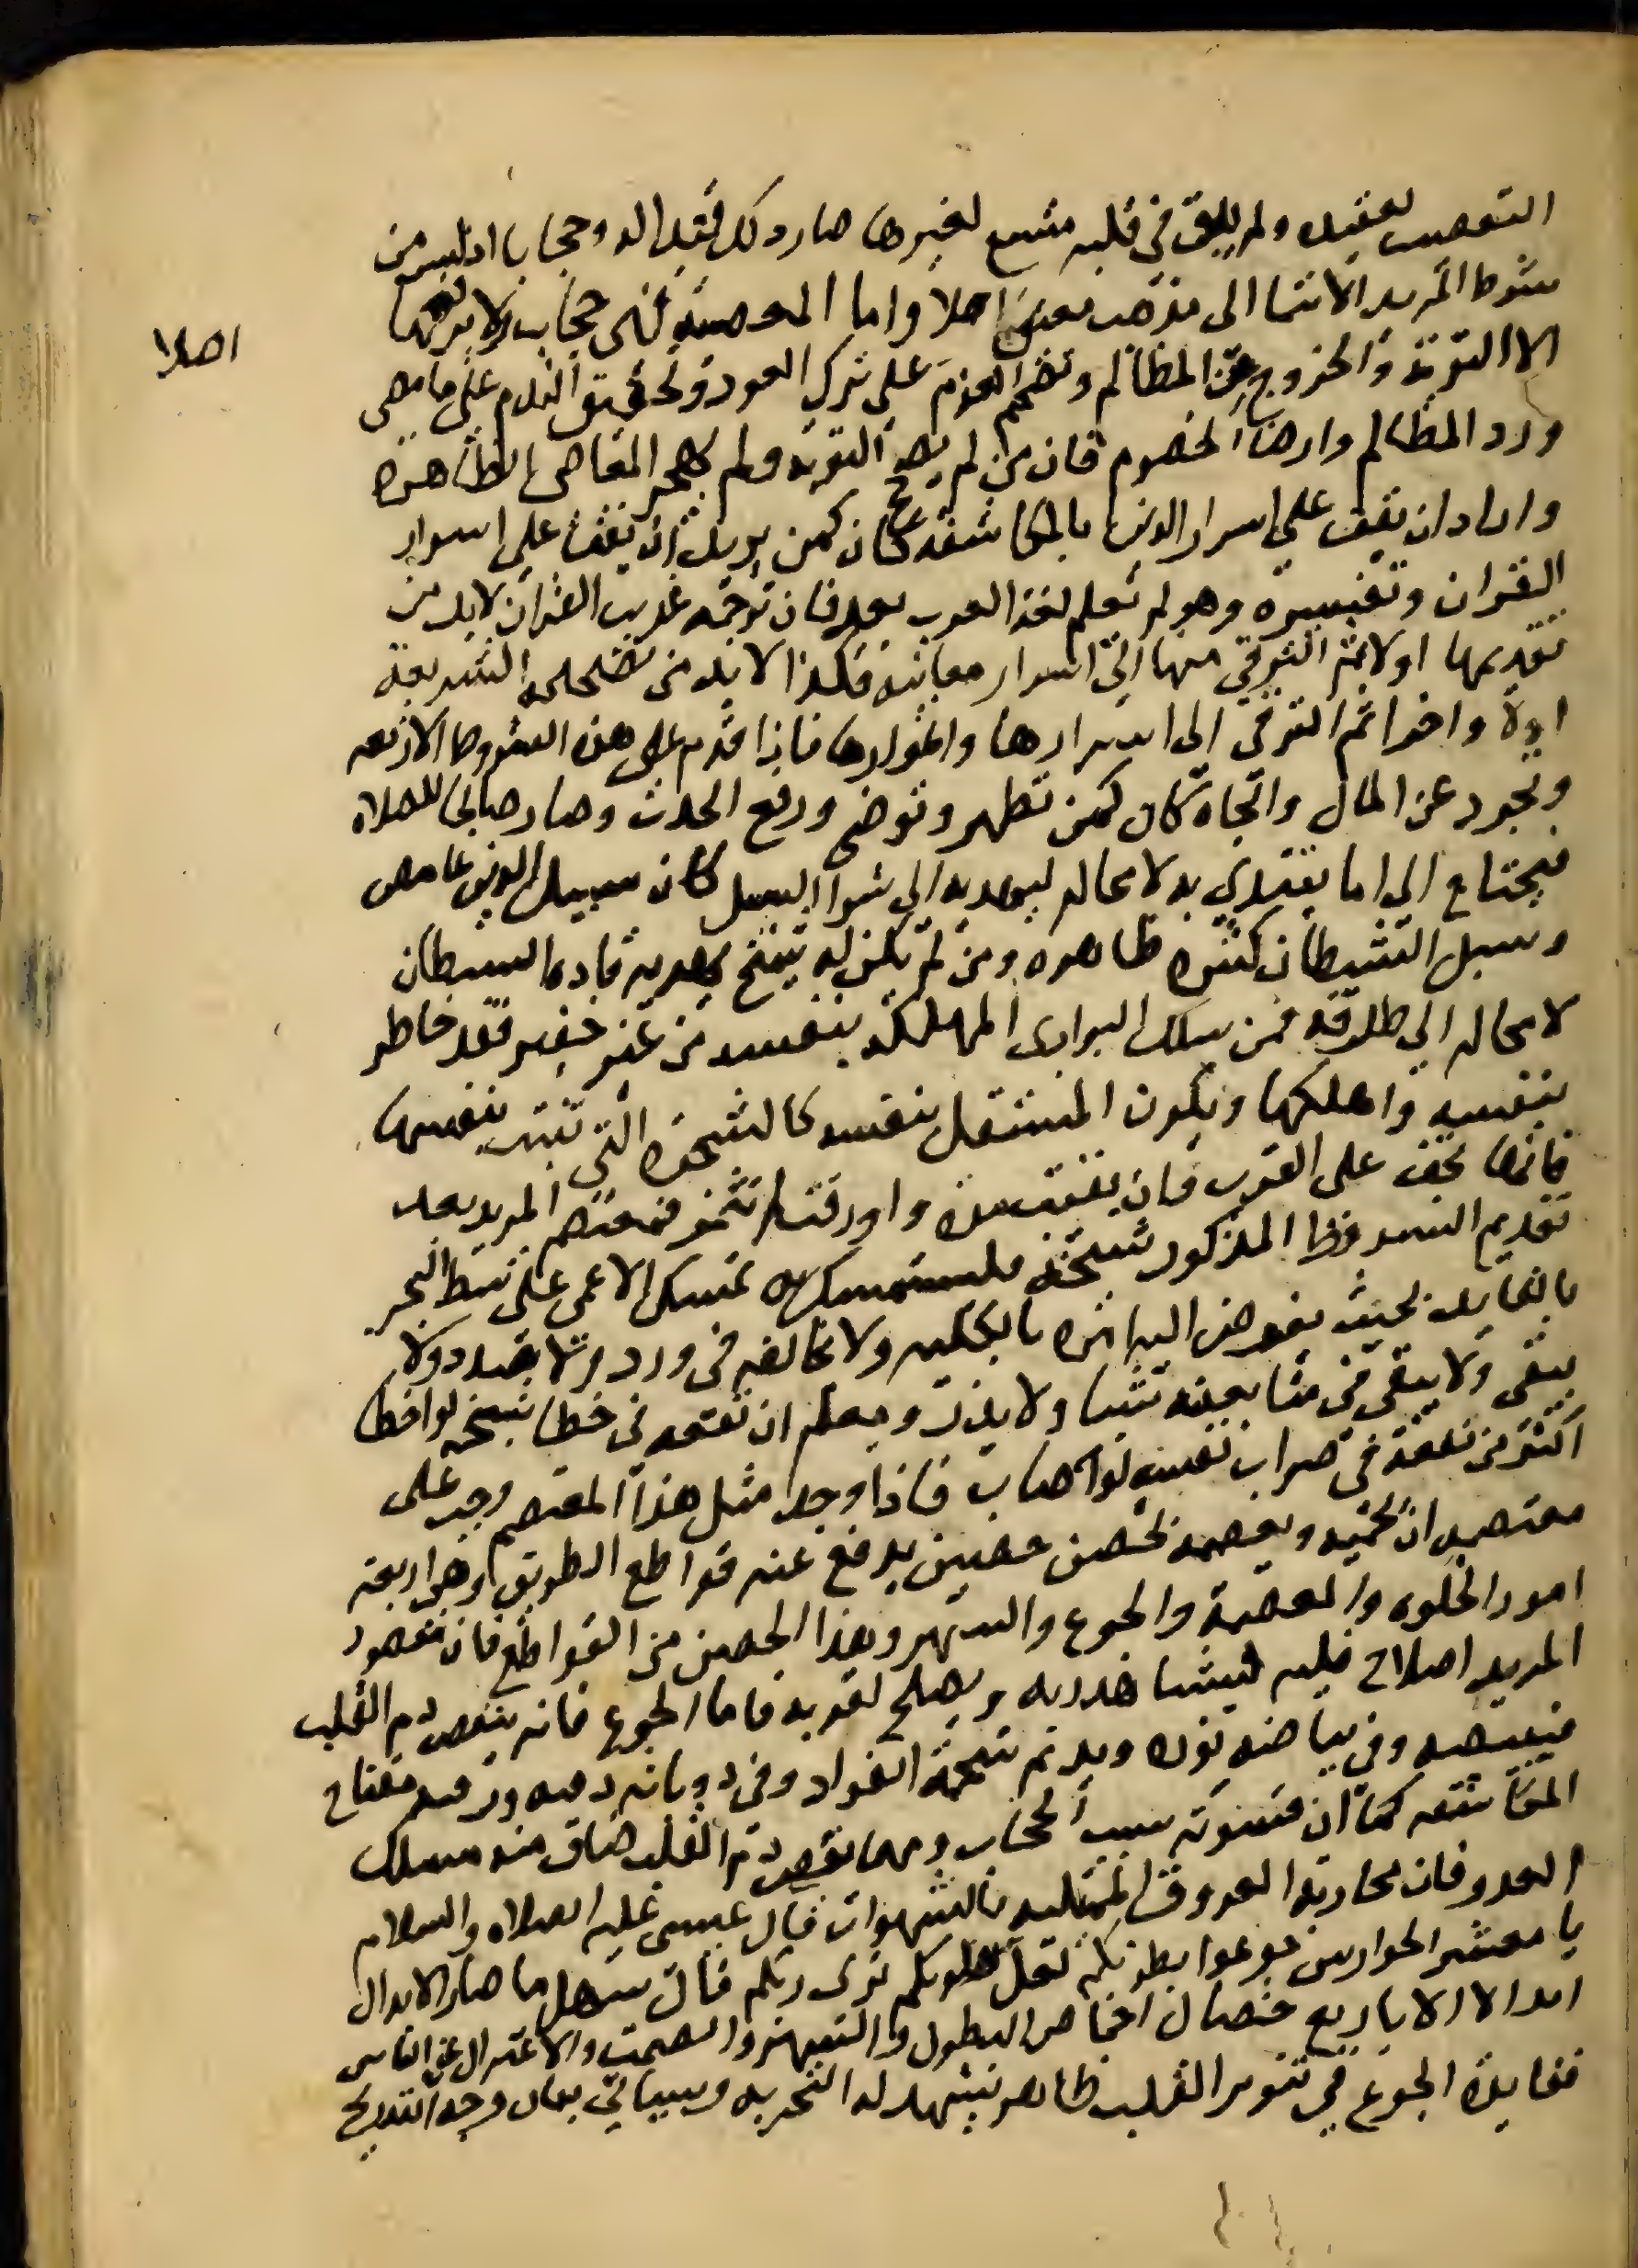 التعصب لعقيده ولم يبق في قلبه متسع لغيرها صار ذلك قيدا له وحجابا اذ ليس من
شرط المريد الانتما الى مذهب معين اصلا واما المعصية فهي حجاب ولا يرفعها
الا التوبة والخروج عن المظالم وتصميم العزم على ترك العود وتحقيق الندم على ما مضى
ورد المظالم وارضا الخصوم فان من لم يصح التوبة ولم يهجر المعاصي الظاهرة
واراد ان يقف على اسرار الدين بالمكاشفة كان كمن يريد ان يقف على اسرار
القران وتفسيره وهو لم تعلم لغة العرب بعد فان ترجمة غريب القران لابد من
تقديمها اولا ثم الترقي منها الى اسرار معانيه فكذا لا بد من تصحيح الشريعة
اولا واخرا ثم الترقي الى اسرارها واغوارها فاذا قدم على هذه الشروط الاربعه
وتجرد عن المال والجاه كان كمن تطهر وتوضى ورفع الحدث وصار صالحا للصلاه
فيحتاج الى اما يقتدي به لا محاله ليهديه الى سوا السبيل كان سبيل الدين غامض
وسبل الشيطان كثيره ظاهره ومن لم يكن له شيخ يهديه قاده الشيطان
لا محاله الى طرقه فمن سلك البوادى المهلكه بنفسه من غير خفير فقد خاطر
بنفسه واهلكها ويكون المستقل بنفسه كالشجره التي تنبت بنفسها
فانها تجف على القرب فان بقيت مدة واورقت لم تثمر فمعتصم المريد بعد
تقديم الشروط المذكور شيخه فليستمسك به تمسك الاعمى على شط البحر
بالقايد بحيث يفوض اليه امره بالكليه ولا يخالفه في ورد ولا صدر ولا
يبقى ولا يبقي في متابعته شيا ولا يذر ويعلم ان نفعه في خطا شيخه لو اخطا
اكثر من نفعه في صواب نفسه لو اصاب فاذا وجد مثل هذا المعتصم وجب على
معتصمه ان يحميه ويعصمه بحصن حصين يدفع عنه قواطع الطريق وهو اربعة
امور الخلوه والصمت والجوع والسهر وهذا الحصن من القواطع فان مقصود
المريد اصلاح قلبه ليشاهد ربه ويصلح لقربه فاما الجوع فانه ينقص دم القلب
فيبيضه وفي بياضه نوره ويذيب شحمة الفواد وفي ذوبانه رقته ورقته مفتاح
المكاشفه كما ان قسوته سبب الحجاب ومهما نقص دم القلب ضاق منه مسلك
العدو فان مجاريه العروق الممتليه بالشهوات قال عيسى عليه الصلاه والسلام
يا معشر الحواريين جوعوا بطونكم لعل قلوبكم ترى ربكم قال سهل ما صار الابدال
ابدالا الا باربع خصال اخماص البطون والسهر والصمت والاعتزال عن الناس
ففايدة الجوع في تنوير القلب ظاهر يشهد له التجربه وسياتي بيان وجه التدريج
اصلا